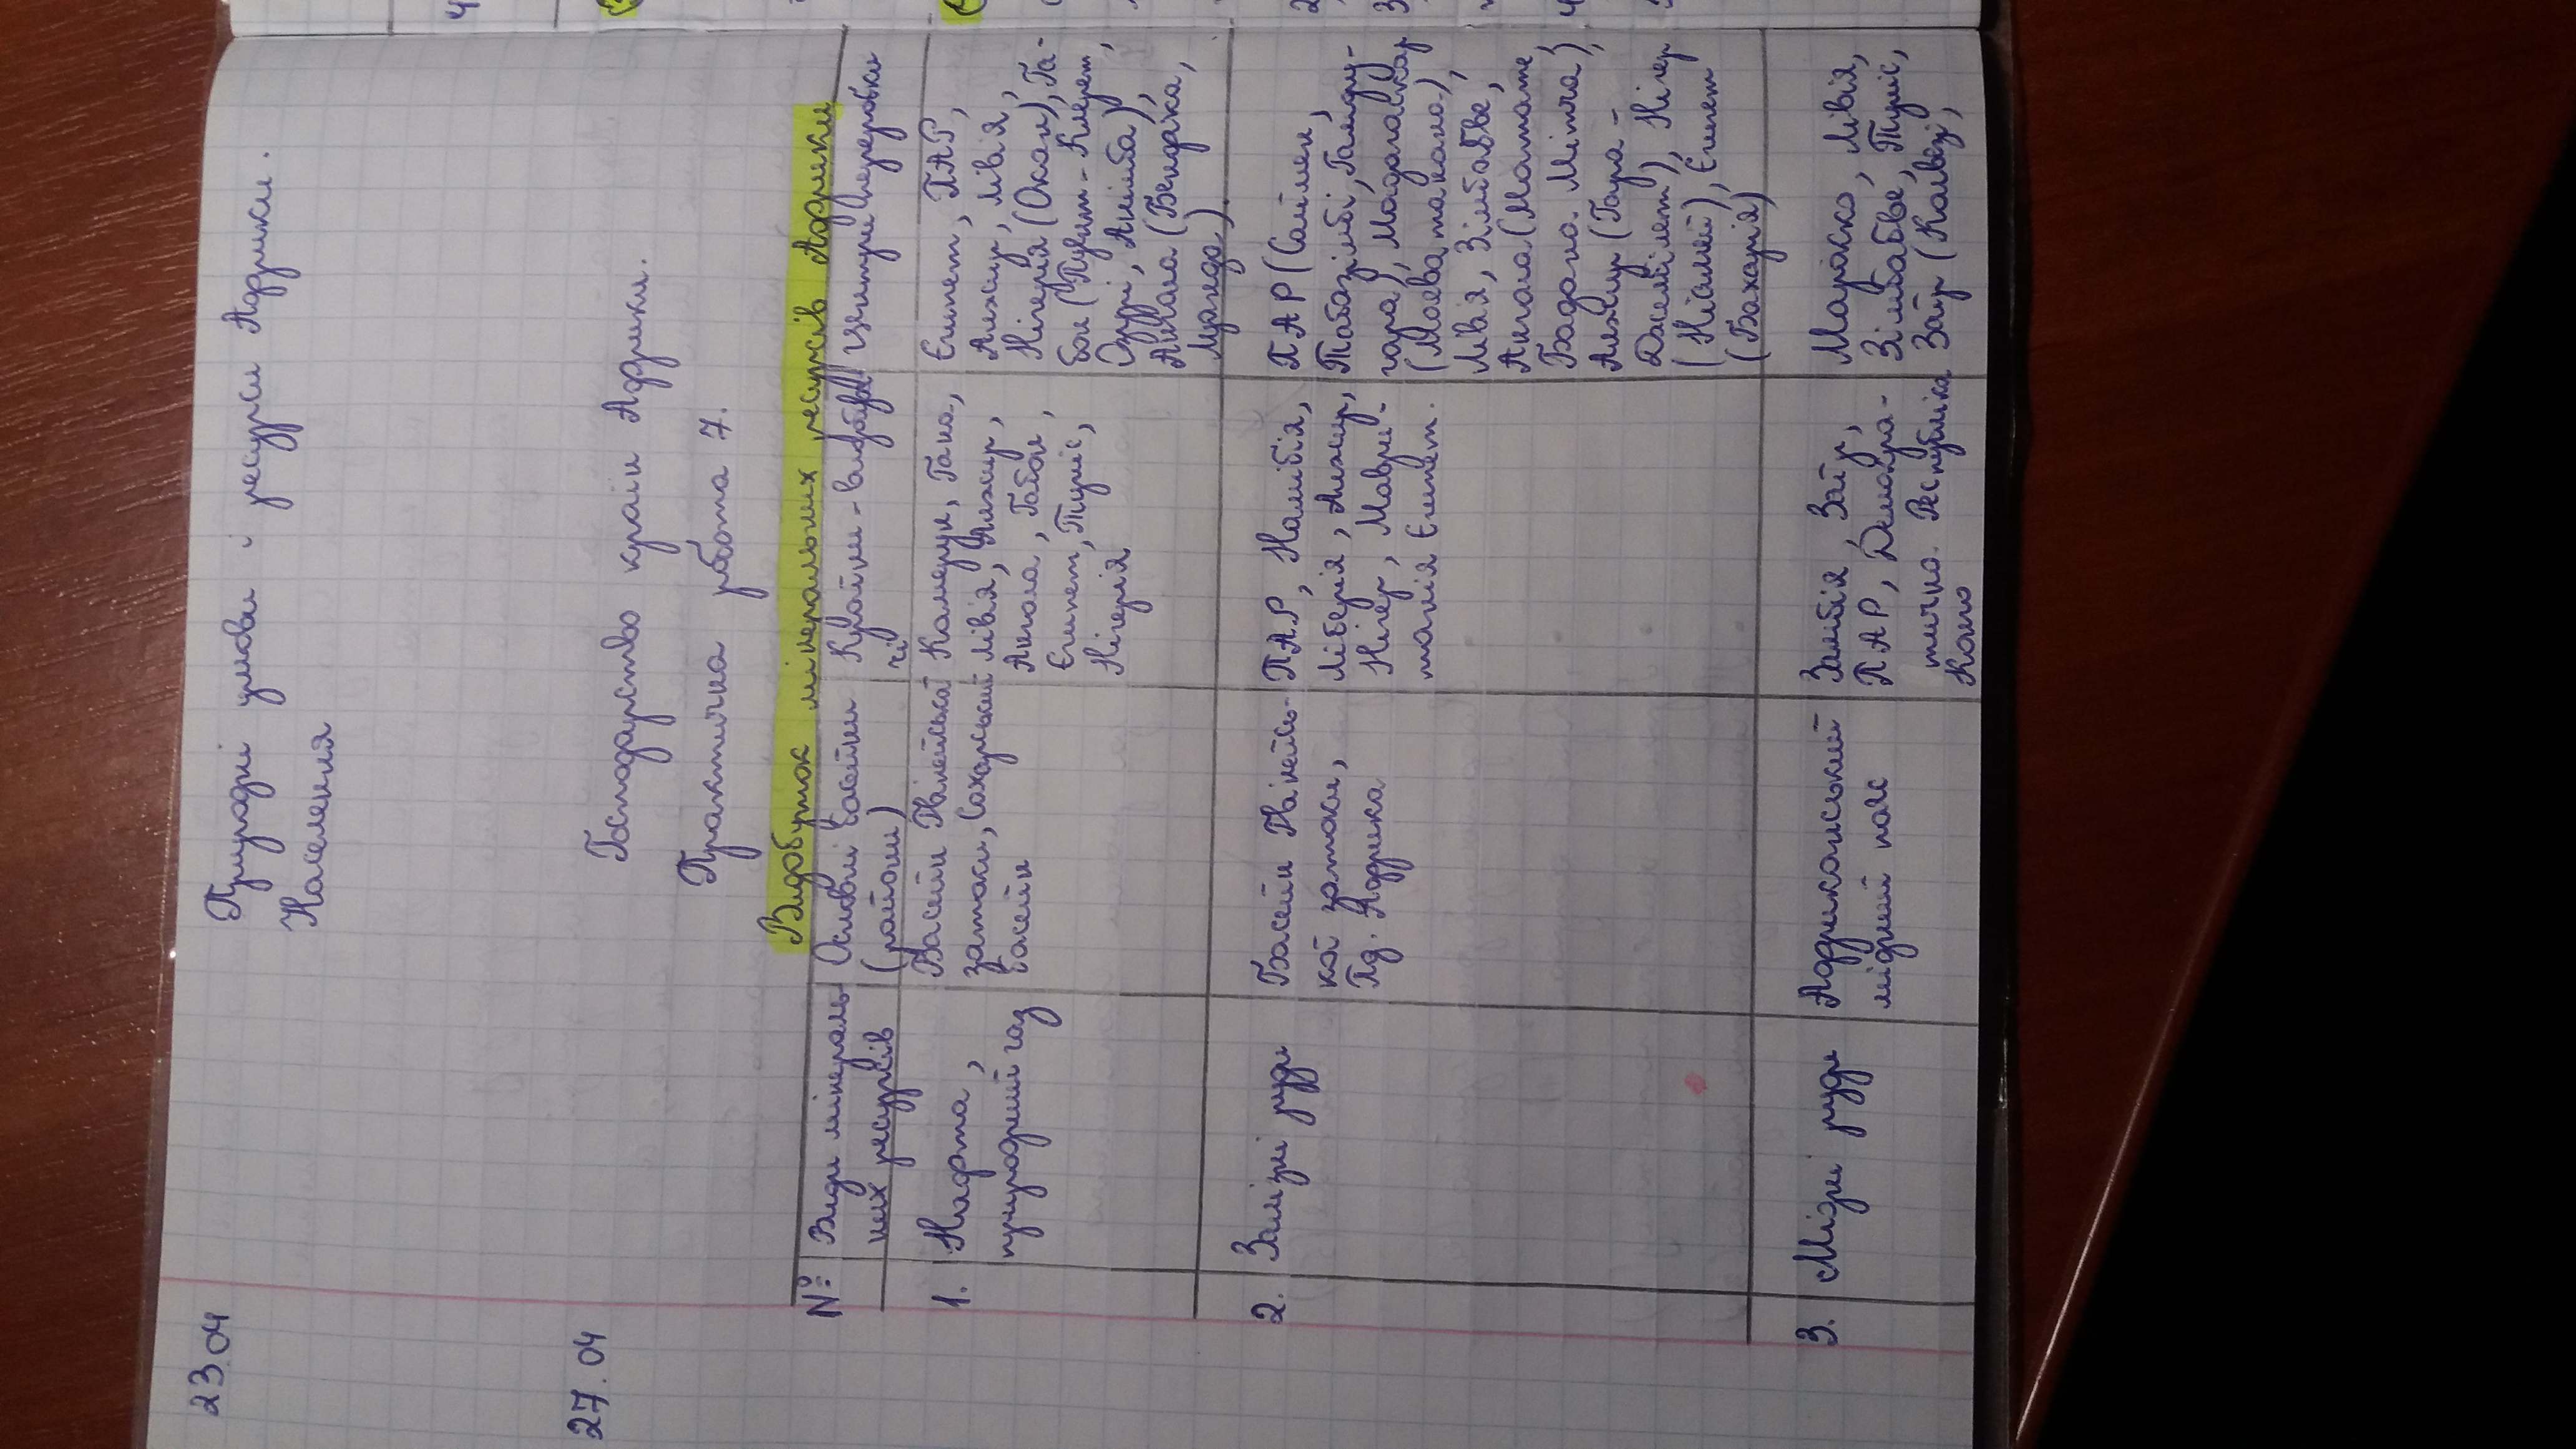 23.04
Природні умови і ресурси Африки.
Населення
27.04
Господарство країн Африки.
Практична робота 7.
Видобуток мінеральних ресурсів Африки
№
Види мінераль-
них ресурсів
Основні басейни
(райони)
Країни - видобува-
чі
Центри переробки
1.
Нафта,
природний газ
Басейн Гвінейської
затоки, Сахарський
басейн
Камерун, Гана,
Лівія, Алжир,
Ангола, Габон,
Єгипет, Туніс,
Нігерія
Єгипет, ПАР,
Алжир, Лівія,
Нігерія (Окан), Га-
бон (Пуент-Клерет,
Озурі, Ангіма),
Ангола (Бендака,
2.
Залізні руди
Басейн Гвінейсь-
кої затоки,
Пд. Африка
ПАР, Намібія,
Ліберія, Алжир,
Нігер, Маври-
танія Єгипет.
ПАР (Саймен,
Табазімбі, Гамагу-
гара), Мадагаскар
(Маеватанана),
Лівія, Зімбабве,
Ангола (Монтанте
Бадана Мітча),
Алжир (Гара-
Джебілет), Нігер
(Ніамей), Єгипет
(Бахарія)
3.
Мідні руди
Африканський
мідний пояс
Замбія, Заїр,
ПАР, Демокра-
тична Республіка
Конго
Марокко, Лівія,
Зімбабве, Туніс,
Заїр (Колвезі,